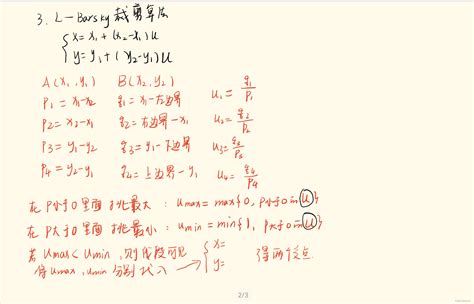 3. L-Barsky 裁剪算法
{ x = x₁ + (x₂-x₁)u
y = y₁ + (y₂-y₁)u
A(x₁,y₁) B(x₂,y₂)
P₁ = x₁-x₂ q₁ = x₁-左边界 u₁ = q₁/P₁
P₂ = x₂-x₁ q₂ = 右边界-x₁ u₂ = q₂/P₂
P₃ = y₁-y₂ q₃ = y₁-下边界 u₃ = q₃/P₃
P₄ = y₂-y₁ q₄ = 上边界-y₁ u₄ = q₄/P₄
在P小于0里面挑最大：umax = max{0, P小于0的u}
在P大于0里面挑最小：umin = min{1, P大于0的u}
若 umax < umin，则线段可见 { x=
将 umax, umin 分别代入 → y= 得两个交点
2/3